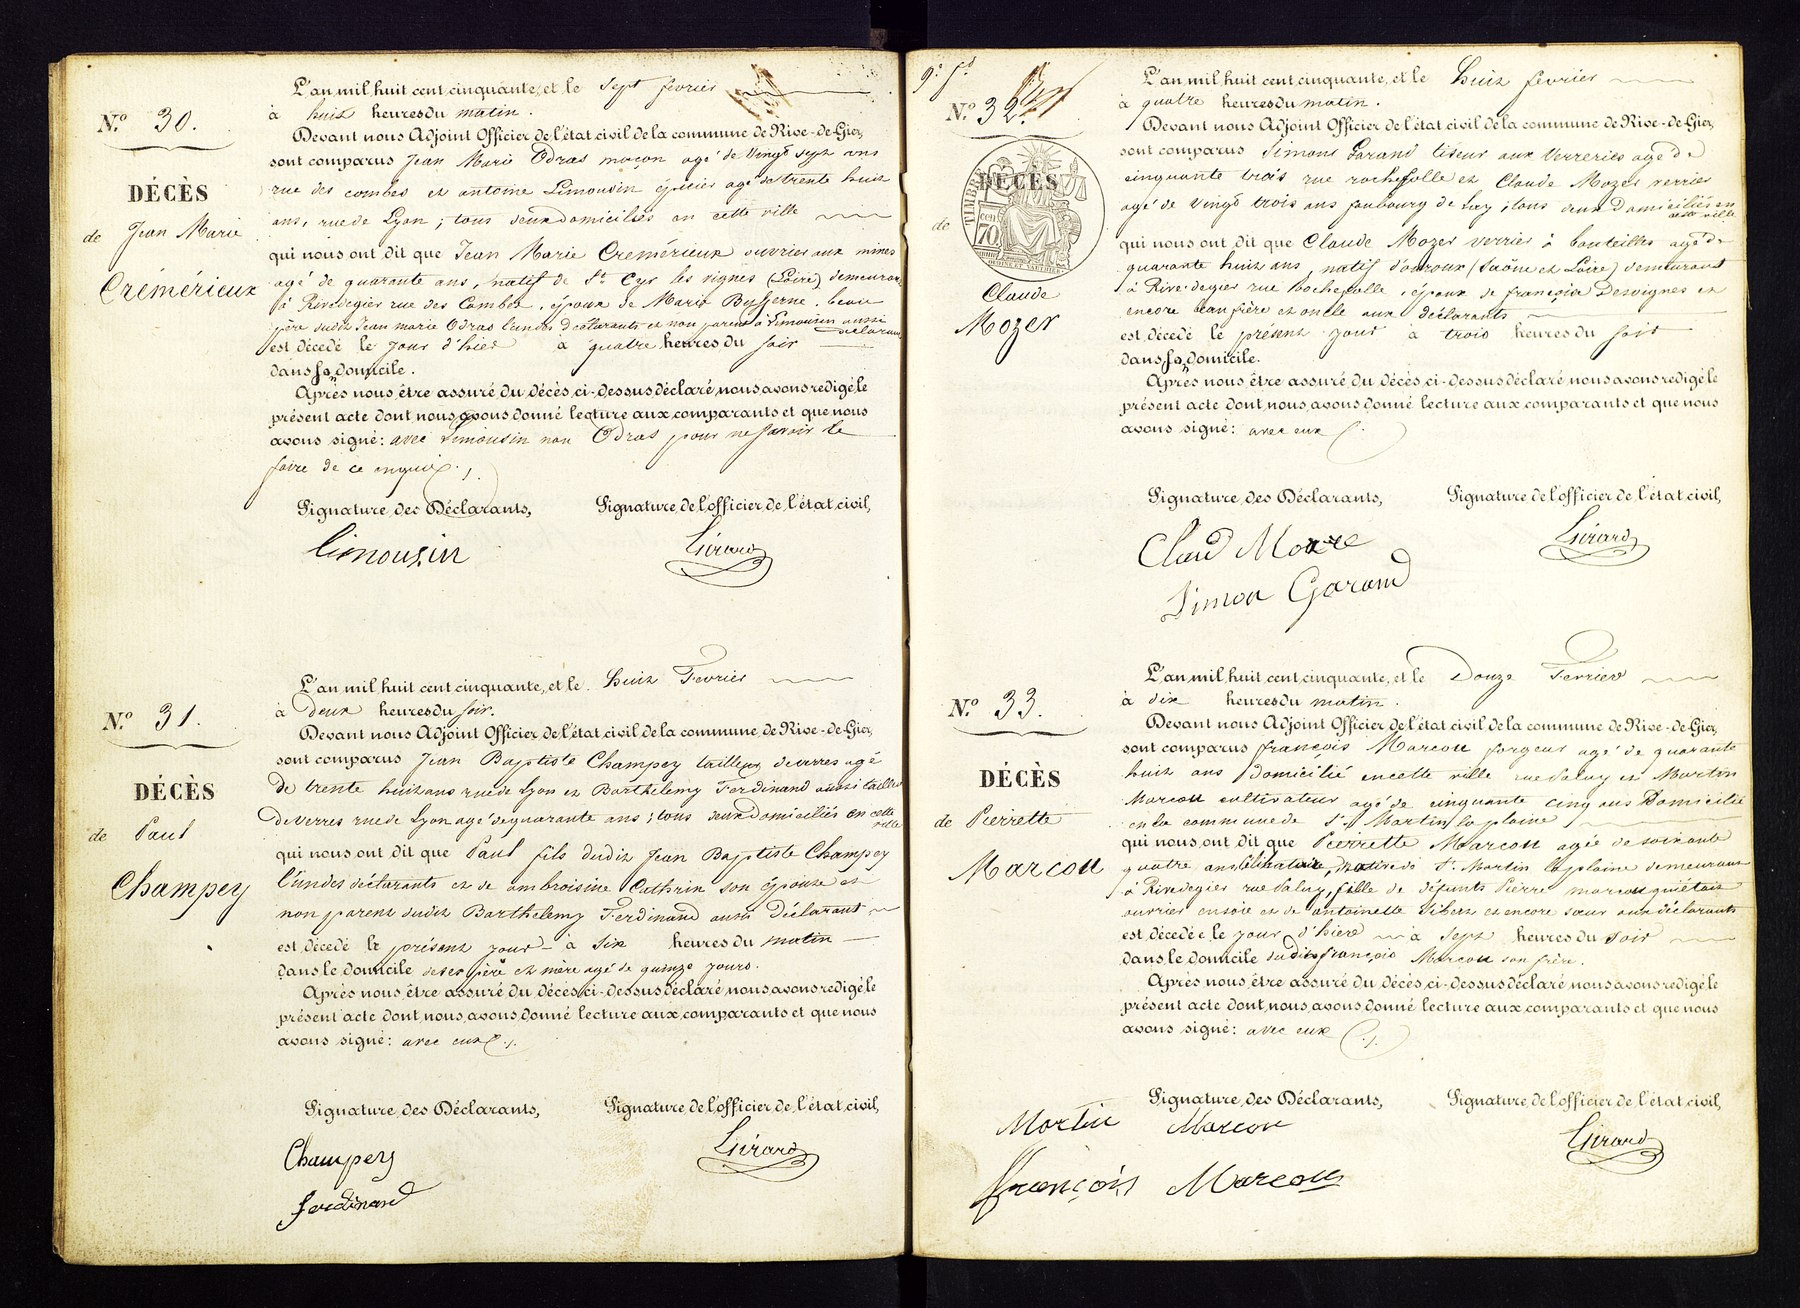 N.o 30.
DÉCÈS
de Jean Marie
Crémérieux
L'an mil huit cent cinquante, et le sept fevrier
à huit heures du matin.
Devant nous Adjoint Officier de l'état civil de la commune de Rive-de-Gier,
sont comparus Jean Marie Odras maçon agé de vingt sept ans
rue des combes et antoine Limousin épicier agé de trente huit
ans, rue de Lyon; tous deux domiciliés en cette ville
qui nous ont dit que Jean Marie Cremérieux ouvrier aux mines
agé de quarante ans, natif de St Cyr les vignes (Loire) demeurant
à Rivedegier rue des Combes, époux de Marie Bysserne, beau
père dudit Jean marie Odras l'un des déclarants et non parent à Limousin aussi
déclarant
est décédé le jour d'hier à quatre heures du soir
dans son domicile.
Après nous être assuré du décès ci-dessus déclaré nous avons redigé le
présent acte dont nous avons donné lecture aux comparants et que nous
avons signé: avec Limousin non Odras pour ne savoir le
faire de ce enquis
Signature des Déclarants,
Signature de l'officier de l'état civil,
Limousin
Girard
N.o 31.
DÉCÈS
de Paul
Champey
L'an mil huit cent cinquante, et le huit Fevrier
à deux heures du soir.
Devant nous Adjoint Officier de l'état civil de la commune de Rive-de-Gier,
sont comparus Jean Baptiste Champey tailleur de verres agé
de trente huit ans rue de Lyon et Barthelemy Ferdinand aussi tailleur
de verres rue de Lyon agé de quarante ans; tous deux domiciliés en cette
ville
qui nous ont dit que Paul fils dudit Jean Baptiste Champey
l'un des déclarants et de ambroisine Cathrin son épouse et
non parent dudit Barthelemy Ferdinand aussi déclarant
est décédé le présent jour à six heures du matin
dans le domicile de ses père et mère agé de quinze jours.
Après nous être assuré du décès ci-dessus déclaré nous avons redigé le
présent acte dont nous avons donné lecture aux comparants et que nous
avons signé: avec eux
Signature des Déclarants,
Signature de l'officier de l'état civil,
Champey
Girard
ferdinand
N.o 32.
DÉCÈS
TIMBRE
70
de
Claude
Mozer
L'an mil huit cent cinquante, et le huit fevrier
à quatre heures du matin.
Devant nous Adjoint Officier de l'état civil de la commune de Rive-de-Gier,
sont comparus Simons Garand tiseur aux verreries agé de
cinquante trois rue rochefolle et Claude Mozer verrier
agé de vingt trois ans faubourg de Luy, tous deux domiciliés en
cette ville
qui nous ont dit que Claude Mozer verrier à bouteilles agé de
quarante huit ans, natif d'ouroux (Saône et Loire) demeurant
à Rivedegier rue Rochefolle, époux de françoise Desvignes et
encore beau frère et oncle aux déclarants
est décédé le présent jour à trois heures du soir
dans son domicile.
Après nous être assuré du décès ci-dessus déclaré nous avons redigé le
présent acte dont nous avons donné lecture aux comparants et que nous
avons signé: avec eux
Signature des Déclarants,
Signature de l'officier de l'état civil,
Claud Mozre
Girard
Simon Garand
N.o 33.
DÉCÈS
de Pierrette
Marcou
L'an mil huit cent cinquante, et le Douze Fevrier
à dix heures du matin.
Devant nous Adjoint Officier de l'état civil de la commune de Rive-de-Gier,
sont comparus françois Marcou forgeur agé de quarante
huit ans domicilié en cette ville rue Paluy et Martin
Marcou cultivateur agé de cinquante cinq ans Domicilié
en la commune de St Martin la plaine
qui nous ont dit que Pierrette Marcou agée de soixante
quatre ans célibataire, native de St Martin la plaine demeurant
à Rivedegier rue Paluy, fille de défunts Pierre marcou qui était
ouvrier en soie et de antoinette Sibert et encore sœur aux déclarants
est décédée le jour d'hiere à sept heures du soir
dans le domicile dudit françois Marcou son frère.
Après nous être assuré du décès ci-dessus déclaré nous avons redigé le
présent acte dont nous avons donné lecture aux comparants et que nous
avons signé: avec eux
Signature des Déclarants,
Signature de l'officier de l'état civil,
Martin Marcou
Girard
françois Marcou